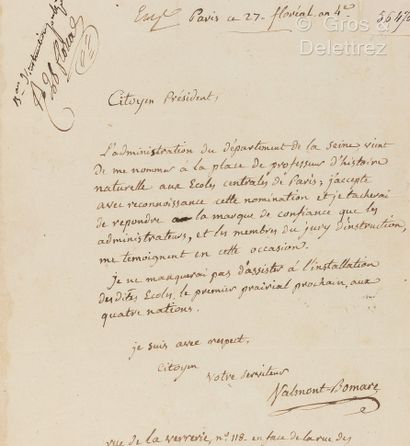 © Gros &
Delettrez
Paris ce 27. floréal an 4e
Citoyen Président,
L'administration du département de la seine vient
de me nommer à la place de professeur d'histoire
naturelle aux Ecoles centrales de Paris; j'accepte
avec reconnoissance cette nomination et je tacherai
de repondre a la marque de confiance que les
administrateurs, et les membres du jury d'instruction,
me temoignent en cette occasion.
Je ne manquerai pas d'assister à l'installation
des dites Ecoles, le premier prairial prochain, aux
quatre nations.
je suis avec respect,
Citoyen
votre serviteur
Valmont-Bomare
rue de la verrerie, n° 118. en face de la rue des